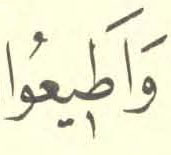 وَاَطٖيعُوا